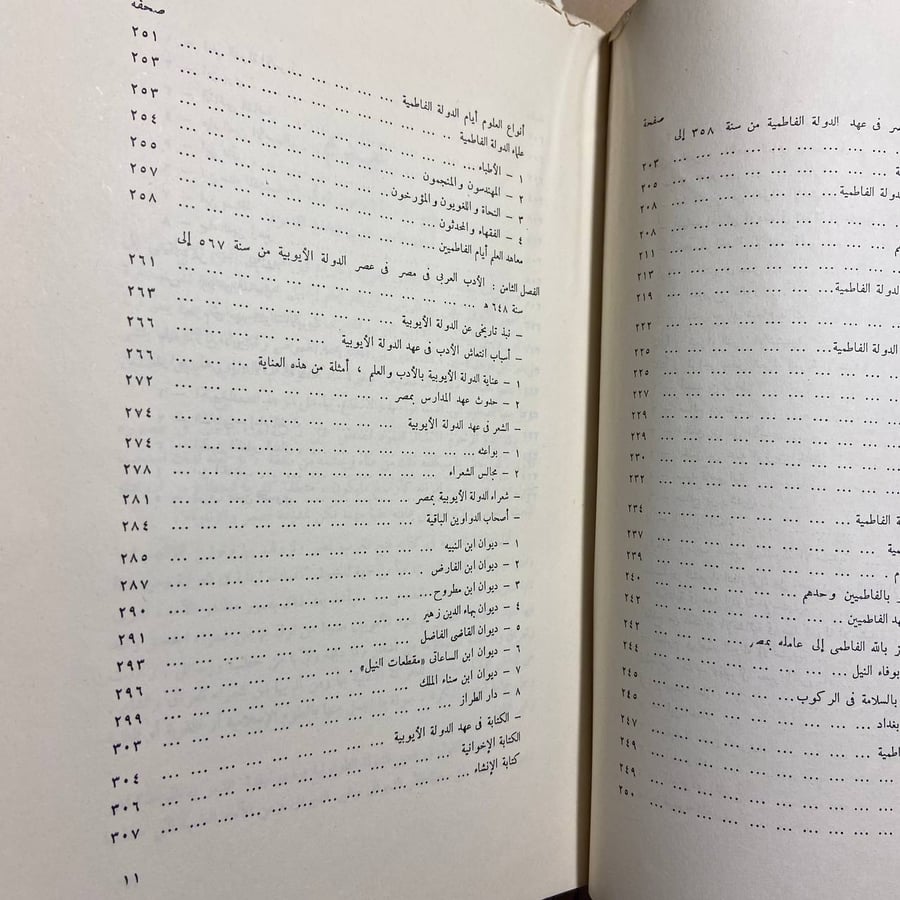 صفحة
فى عهد الدولة الفاطمية من سنة ٣٥٨ إلى
... ... ... ٢٠٣
... ... ... ٢٠٥
الدولة الفاطمية... ... ... ٢٠٨
... ... ... ٢٠٨
... ... ... ٢١١
... ... ... ٢١٣
الدولة الفاطمية... ... ... ٢١٩
... ... ... ٢٢٢
الدولة الفاطمية... ... ... ٢٢٥
... ... ... ٢٢٥
... ... ... ٢٢٧
... ... ... ٢٢٩
... ... ... ٢٢٩
... ... ... ٢٣٠
... ... ... ٢٣٢
الفاطمية ... ... ... ٢٣٤
... ... ... ٢٣٧
... ... ... ٢٣٩
بالفاطميين وحدهم ... ... ... ٢٤٠
الفاطميين ... ... ... ٢٤٢
بالله الفاطمى إلى عامله بمصر ... ٢٤٢
بوفاء النيل ... ... ... ٢٤٤
بالسلامة فى الركوب ... ... ... ٢٤٥
بغداد ... ... ... ٢٤٥
... ... ... ٢٤٧
... ... ... ٢٤٩
... ... ... ٢٤٩
... ... ... ٢٥٠
صفحة
أنواع العلوم أيام الدولة الفاطمية ... ... ... ٢٥١
علماء الدولة الفاطمية ... ... ... ٢٥٣
١ – الأطباء ... ... ... ٢٥٣
٢ – المهندسون والمنجمون ... ... ... ٢٥٤
٣ – النحاة واللغويون والمؤرخون ... ... ... ٢٥٥
٤ – الفقهاء والمحدثون ... ... ... ٢٥٧
معاهد العلم أيام الفاطميين ... ... ... ٢٥٨
الفصل الثامن : الأدب العربى فى مصر فى عصر الدولة الأيوبية من سنة ٥٦٧ إلى
سنة ٦٤٨ ه ... ... ... ٢٦١
– نبذ تاريخى عن الدولة الأيوبية ... ... ... ٢٦٣
– أسباب انتعاش الأدب فى عهد الدولة الأيوبية ... ... ... ٢٦٦
١ – عناية الدولة الأيوبية بالأدب والعلم ، أمثلة من هذه العناية ... ... ٢٦٦
٢ – حدوث عهد المدارس بمصر ... ... ... ٢٧٢
– الشعر فى عهد الدولة الأيوبية ... ... ... ٢٧٤
١ – بواعثه ... ... ... ٢٧٤
٢ – مجالس الشعراء ... ... ... ٢٧٨
– شعراء الدولة الأيوبية بمصر ... ... ... ٢٨١
– أصحاب الدواوين الباقية ... ... ... ٢٨٤
١ – ديوان ابن النبيه ... ... ... ٢٨٥
٢ – ديوان ابن الفارض ... ... ... ٢٨٧
٣ – ديوان ابن مطروح ... ... ... ٢٩٠
٤ – ديوان بهاء الدين زهير ... ... ... ٢٩١
٥ – ديوان القاضى الفاضل ... ... ... ٢٩٣
٦ – ديوان ابن الساعاتى «مقطعات النيل» ... ... ... ٢٩٦
٧ – ديوان ابن سناء الملك ... ... ... ٢٩٩
٨ – دار الطراز ... ... ... ٣٠٣
– الكتابة فى عهد الدولة الأيوبية ... ... ... ٣٠٤
الكتابة الإخوانية ... ... ... ٣٠٦
كتابة الإنشاء ... ... ... ٣٠٧
١١